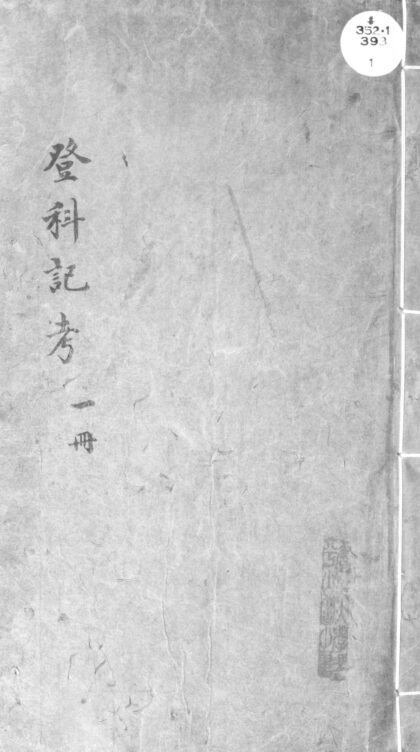 352·1
393
1
登科記考
一冊